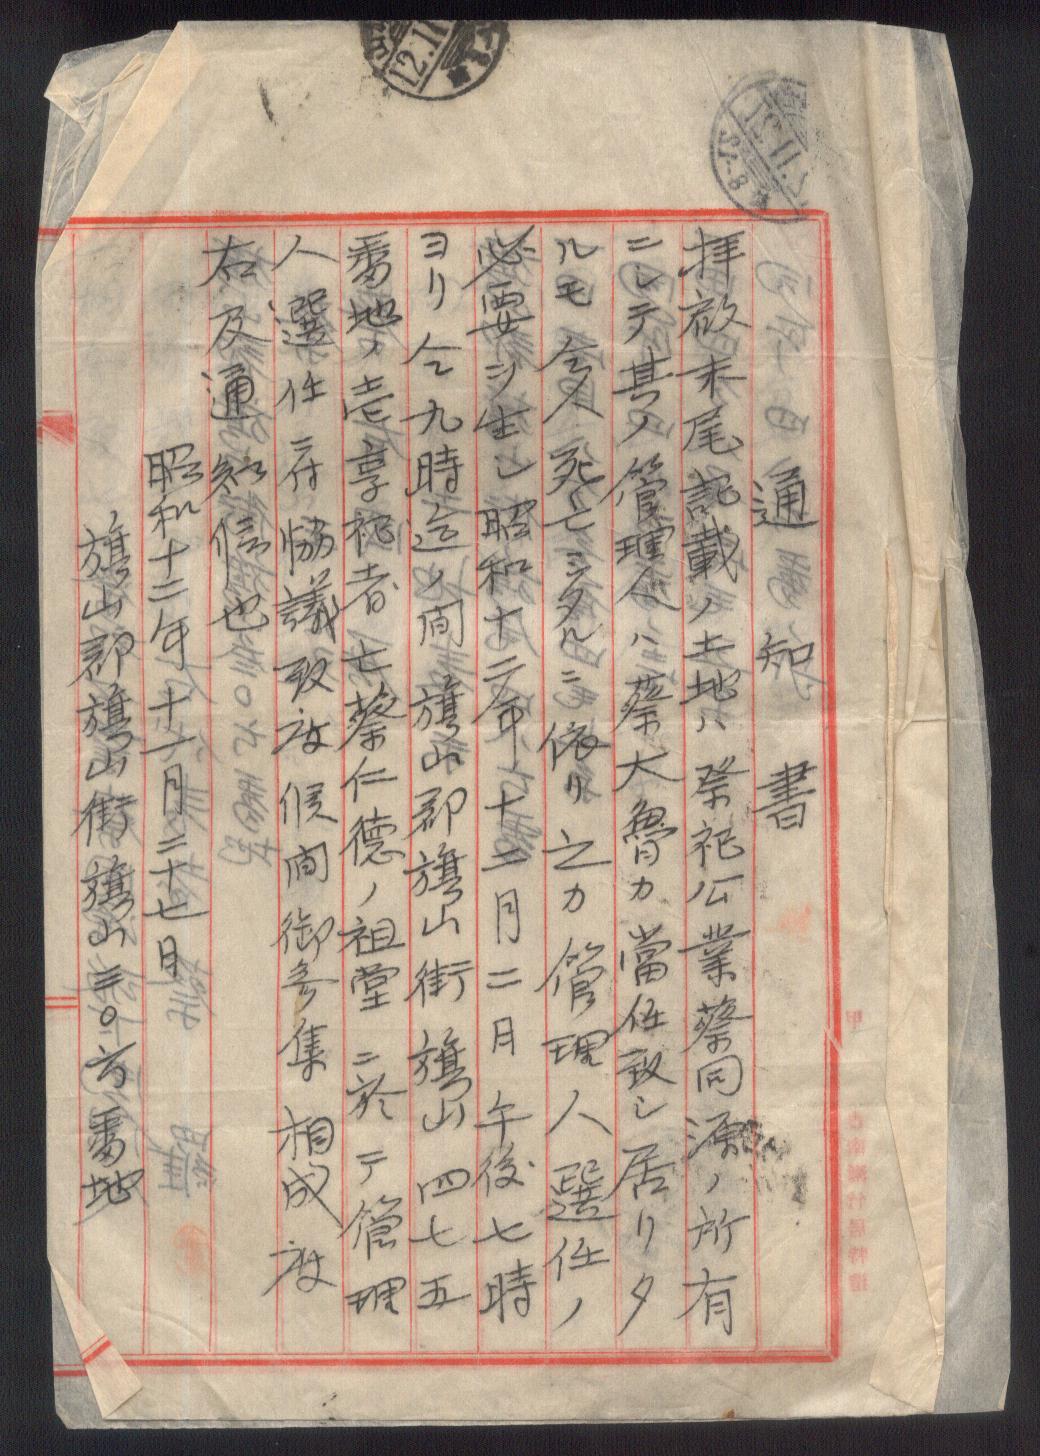 通知書
拝啓末尾記載ノ土地ハ祭祀公業蔡同源ノ所有
ニシテ其ノ管理人ハ蔡大魯カ當任致シ居リタ
ルモ今人死亡シタルニ依リ之カ管理人選任ノ
必要ヲ生シ昭和十二年十二月二日午後七時
ヨリ仝九時迄ノ間旗山郡旗山街旗山四七五
番地ノ壱享祀者亡蔡仁德ノ祖堂ニ於テ管理
人選任ニ付協議致度候間御參集相成度
右及通知候也
昭和十二年十一月二十七日
旗山郡旗山街旗山三〇六番地
12.11
12.11.
8-12